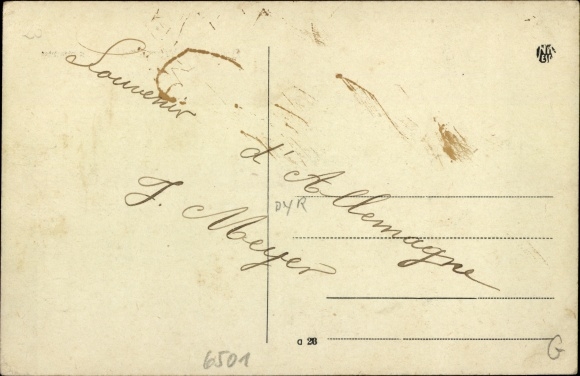 Souvenir
d'Allemagne
J. Meyer
DYR
a 28
6501
G